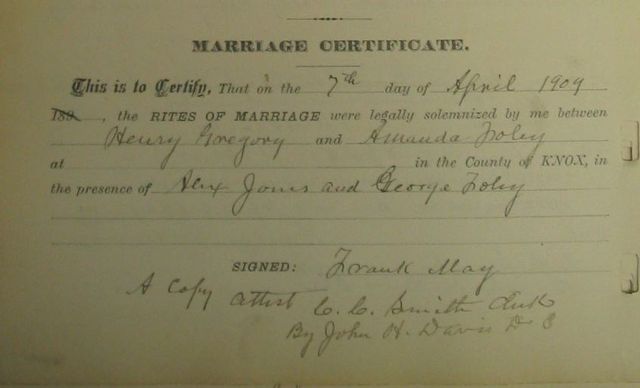 MARRIAGE CERTIFICATE.
This is to Certify, That on the 7th day of April 1909
189 , the RITES OF MARRIAGE were legally solemnized by me between
Henry Gregory and Amanda Foley
at in the County of KNOX, in
the presence of Alex Jones and George Foley
SIGNED: Frank May
A Copy Attest C. C. Smith Clerk
By John H. Davis D C